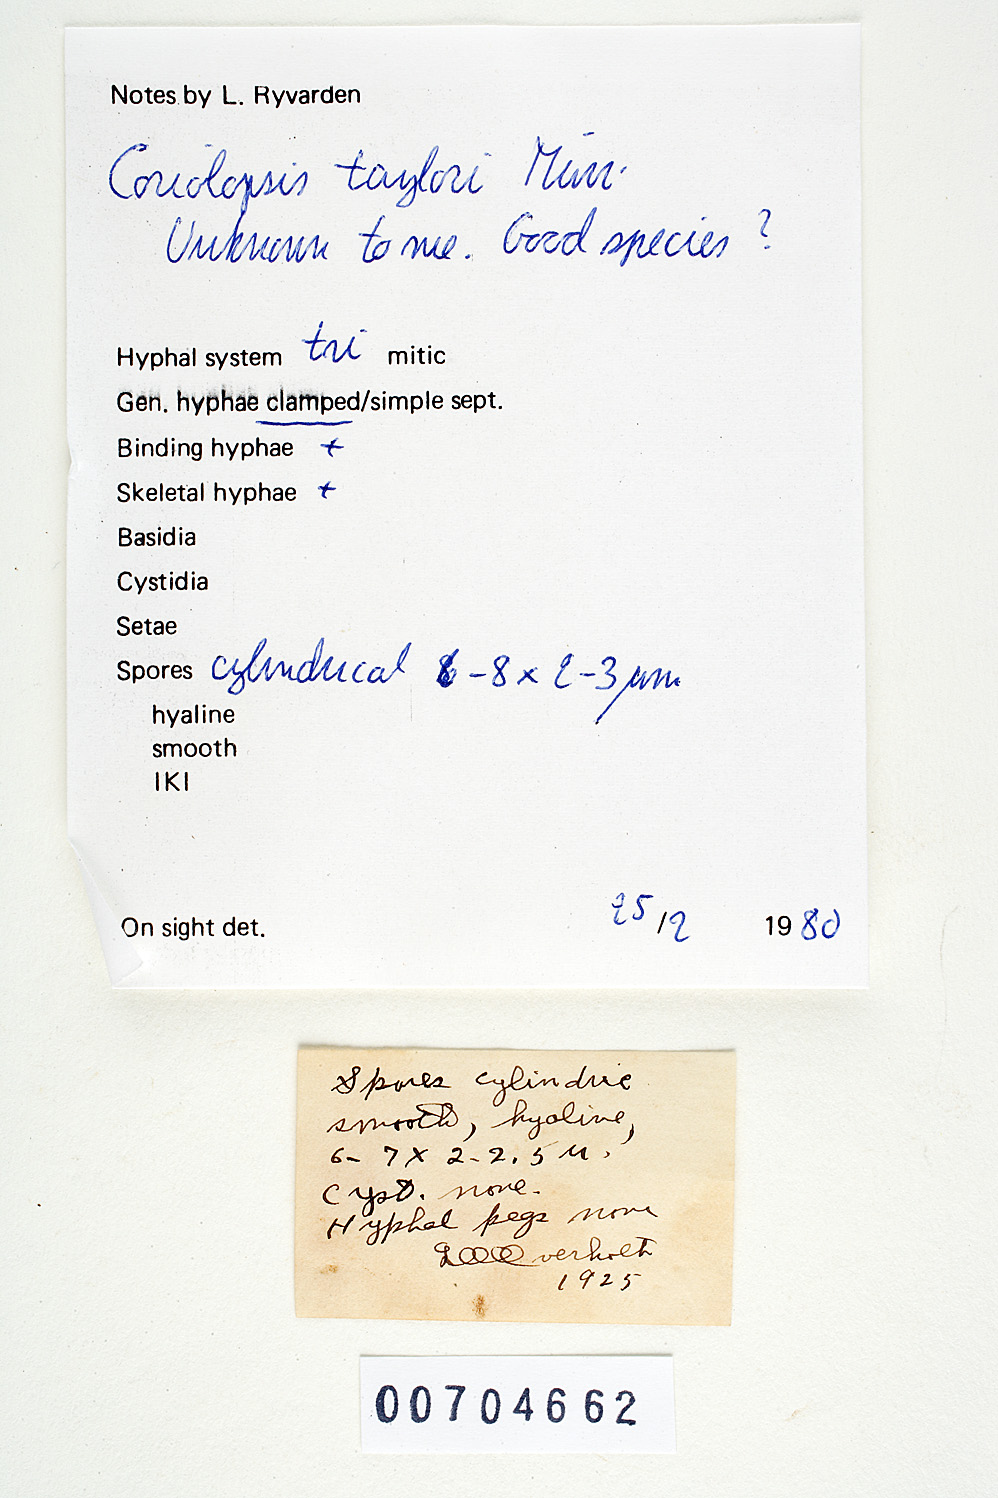 Notes by L. Ryvarden
Coriolopsis taylori Murr.
Unknown to me. Good species?
Hyphal system tri mitic
Gen. hyphae clamped/simple sept.
Binding hyphae +
Skeletal hyphae +
Basidia
Cystidia
Setae
Spores cylindrical 6-8 x 2-3 µm
hyaline
smooth
IKI
On sight det. 25/2 1980
Spores cylindric
smooth, hyaline,
6-7 X 2-2.5 µ.
Cyst. none.
Hyphal pegs none
L.O. Overholts
1925
00704662